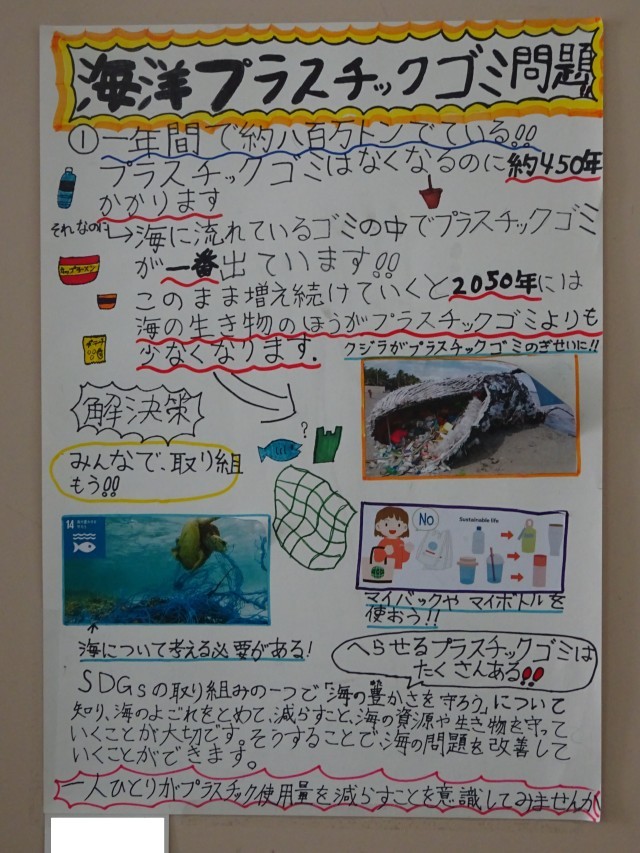 海洋プラスチックゴミ問題
① 一年間で約八百万トンでている!!
プラスチックゴミはなくなるのに約450年
かかります
それなのに→海に流れているゴミの中でプラスチックゴミ
が一番出ています!!
カップラーメン
このまま増え続けていくと2050年には
海の生き物のほうがプラスチックゴミよりも
少なくなります.
クジラがプラスチックゴミのぎせいに!!
解決策
?
みんなで、取り組
もう!!
14
No
Sustainable life
マイバックや マイボトルを
使おう!!
海について考える必要がある!
へらせるプラスチックゴミは
たくさんある!!
SDGsの取り組みの一つで「海の豊かさを守ろう」について
知り、海のよごれをとめて、減らすこと、海の資源や生き物を守って
いくことが大切です。そうすることで、海の問題を改善して
いくことができます。
一人ひとりがプラスチック使用量を減らすことを意識してみませんか